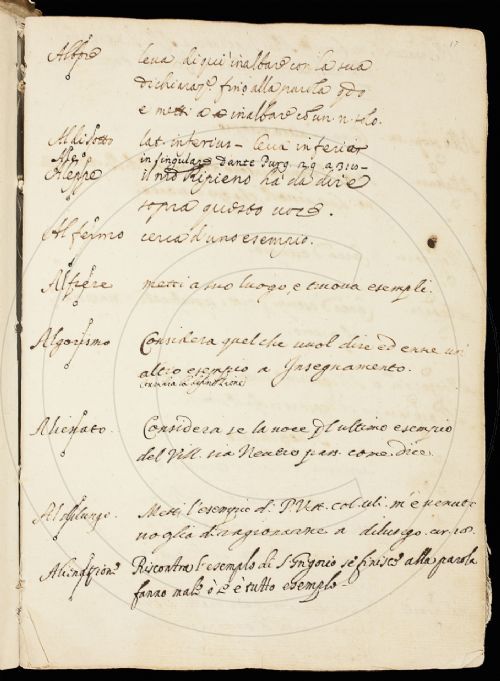 17
Albore leva di qui inalbare con la sua
dichiaraz.e fino alla parola
e metti a inalbare con un n. solo.
Al di sotto lat. inferius - leva inferior
Alep in singulare Dante Purg. 29. a 310 -
Aleppe il nro Stipieno ha da dire
sopra questo voce.
Al fermo cerca d'uno esempio.
Alfiere metti a suo luogo, e truova esempli.
Algorismo Considera quel che vuol dire ed enne un
altro esempio a Insegnamento.
Alienato. Considera se la voce dl ultimo esempio
del Vill. sia Neutro pass. come dice.
Al dilungo. Metti l'esempio di P. Vett. col. uli. m'è venuto
voglia di ragionarne a dilungo. car. 101.
Alienazione Riscontra l'esemplo di S. Grigorio se finisce alla parola
fanno male ò se è tutto esemplo -